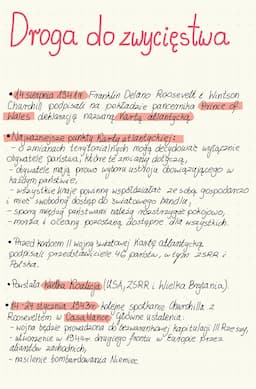 Droga do zwycięstwa
• 14 sierpnia 1941r. Franklin Delano Roosevelt i Wintson
Churchill podpisali na pokładzie pancernika Prince of
Wales deklarację nazwaną Kartą atlantycką.
• Najważniejsze punkty Karty atlantyckiej:
- o zmianach terytorialnych mogą decydować wyłącznie
obywatele państwa, które te zmiany dotyczą,
- obywatele mają prawo wyboru ustroju obowiązującego w
każdym państwie,
- wszystkie kraje powinny współdziałać ze sobą gospodarczo
i mieć swobodny dostęp do światowego handlu,
- spory między państwami należy rozstrzygać pokojowo,
- morza i oceany pozostaną dostępne dla wszystkich.
• Przed końcem II wojny światowej Kartę atlantycką
podpisali przedstawiciele 46 państw, w tym ZSRR i
Polska.
• Powstała Wielka Koalicja (USA, ZSRR i Wielka Brytania).
• 14-24 stycznia 1943r. kolejne spotkanie Churchilla z
Rooseveltem w Casablance. Główne ustalenia:
- wojna będzie prowadzona do bezwarunkowej kapitulacji III Rzeszy,
- utworzenie w 1944r. drugiego frontu w Europie przez
aliantów zachodnich,
- nasilenie bombardowania Niemiec